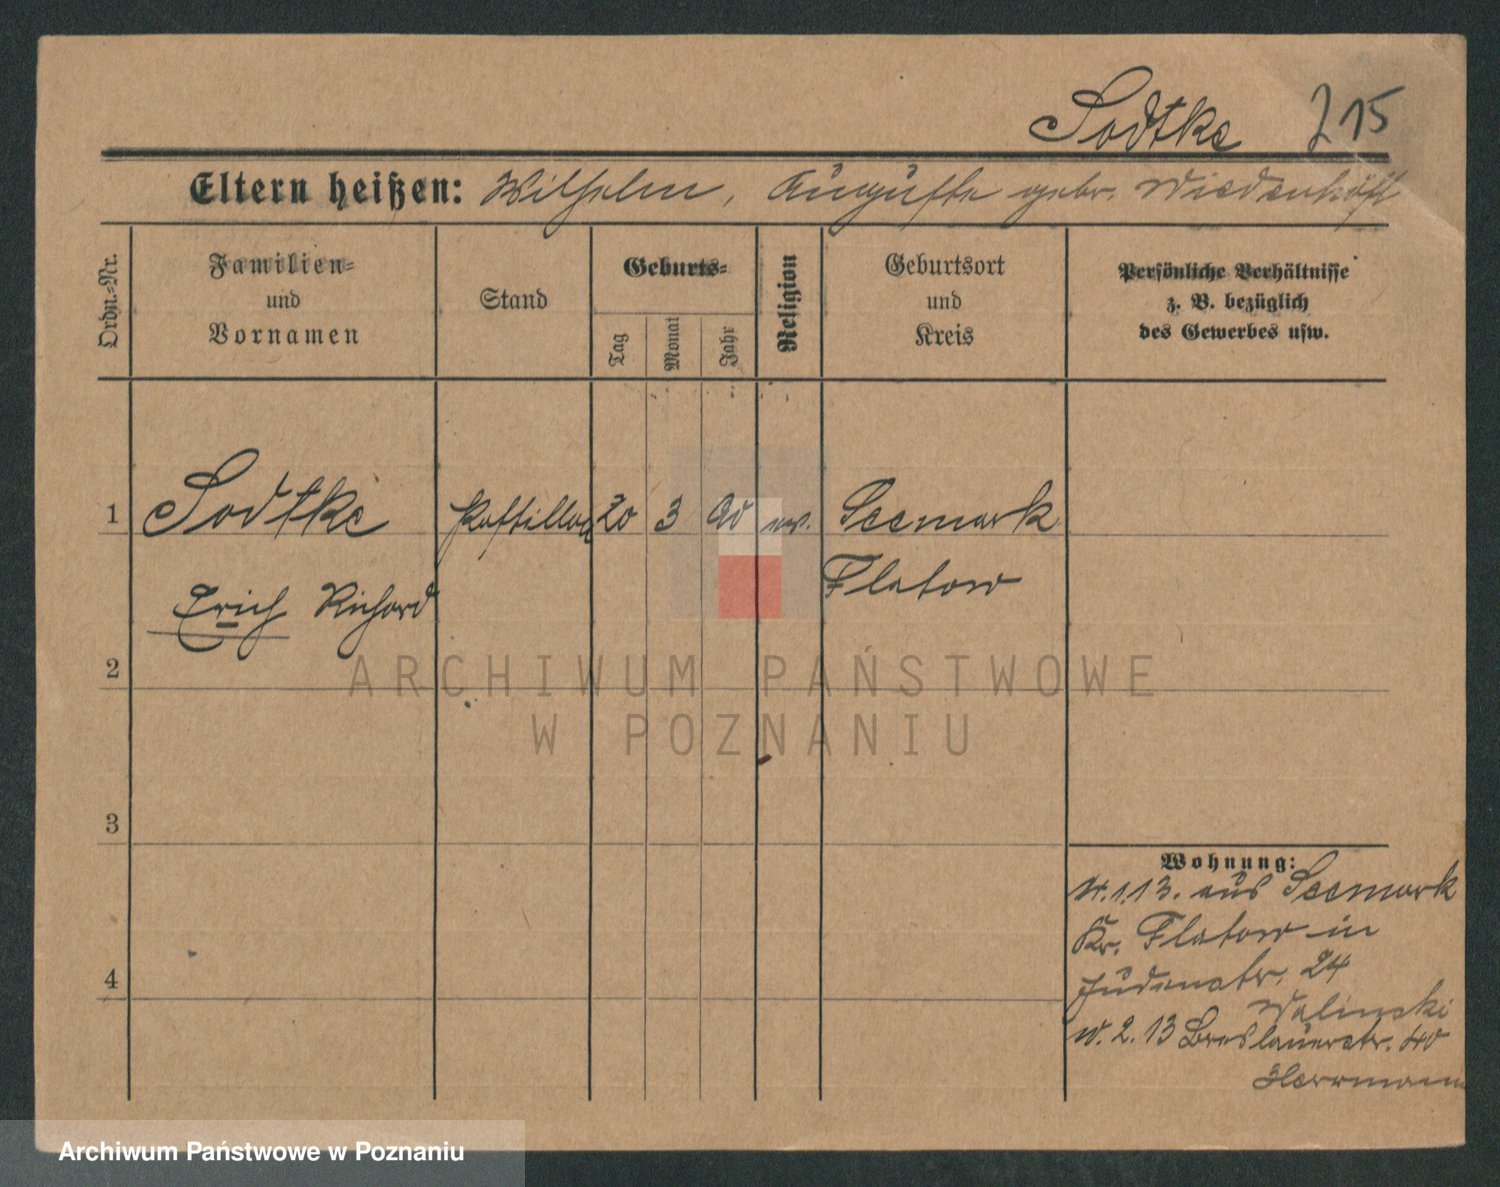 Sodtke 215
Eltern heißen: Wilhelm, Auguste gebr. Wiedenhöft
Ordn.-Nr.
Familien-
und
Vornamen
Stand
Geburts-
Tag
Monat
Jahr
Religion
Geburtsort
und
Kreis
Persönliche Verhältnisse
z. B. bezüglich
des Gewerbes usw.
1 Sodtke Postillon 20 3 90 ev. Seemark
Flatow
Erich Richard
2
ARCHIWUM PAŃSTWOWE
W POZNANIU
3
4
Wohnung:
1.13. aus Seemark
Kr. Flatow in
Judenstr. 24
Walinski
2. 13 Breslauerstr. 40
Herrmann
Archiwum Państwowe w Poznaniu